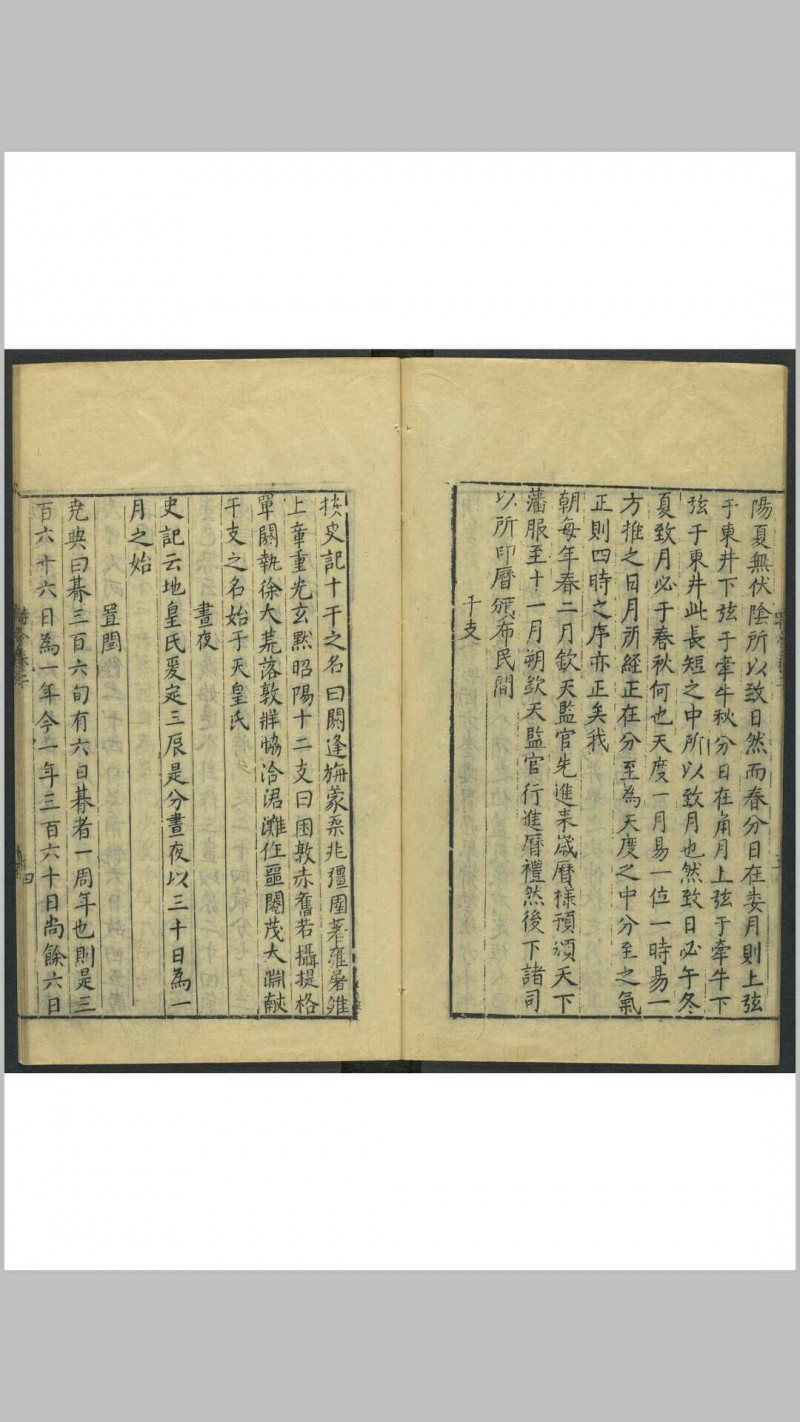 陽夏無伏陰所以致日然而春分日在婁月則上弦
于東井下弦于牽牛秋分日在角月上弦于牽牛下
弦于東井此長短之中所以致月也然致日必午冬
夏致月必于春秋何也天度一月易一位一時易一
方推之日月所經正在分至為天度之中分至之氣
正則四時之序亦正矣我
朝每年春二月欽天監官先進来歲曆樣預頒天下
藩服至十一月朔欽天監官行進曆禮然後下諸司
以所印曆頒布民間
干支
按史記十干之名曰閼逢旃蒙柔兆彊圉著雍屠維
上章重光玄黙昭陽十二支曰困敦赤奮若攝提格
單閼執徐大荒落敦牂協洽涒灘作噩閹茂大淵獻
干支之名始于天皇氏
晝夜
史記云地皇氏爰定三辰是分晝夜以三十日為一
月之始
置閏
堯典曰朞三百六旬有六日朞者一周年也則是三
百六十六日為一年今一年三百六十日尚餘六日
四